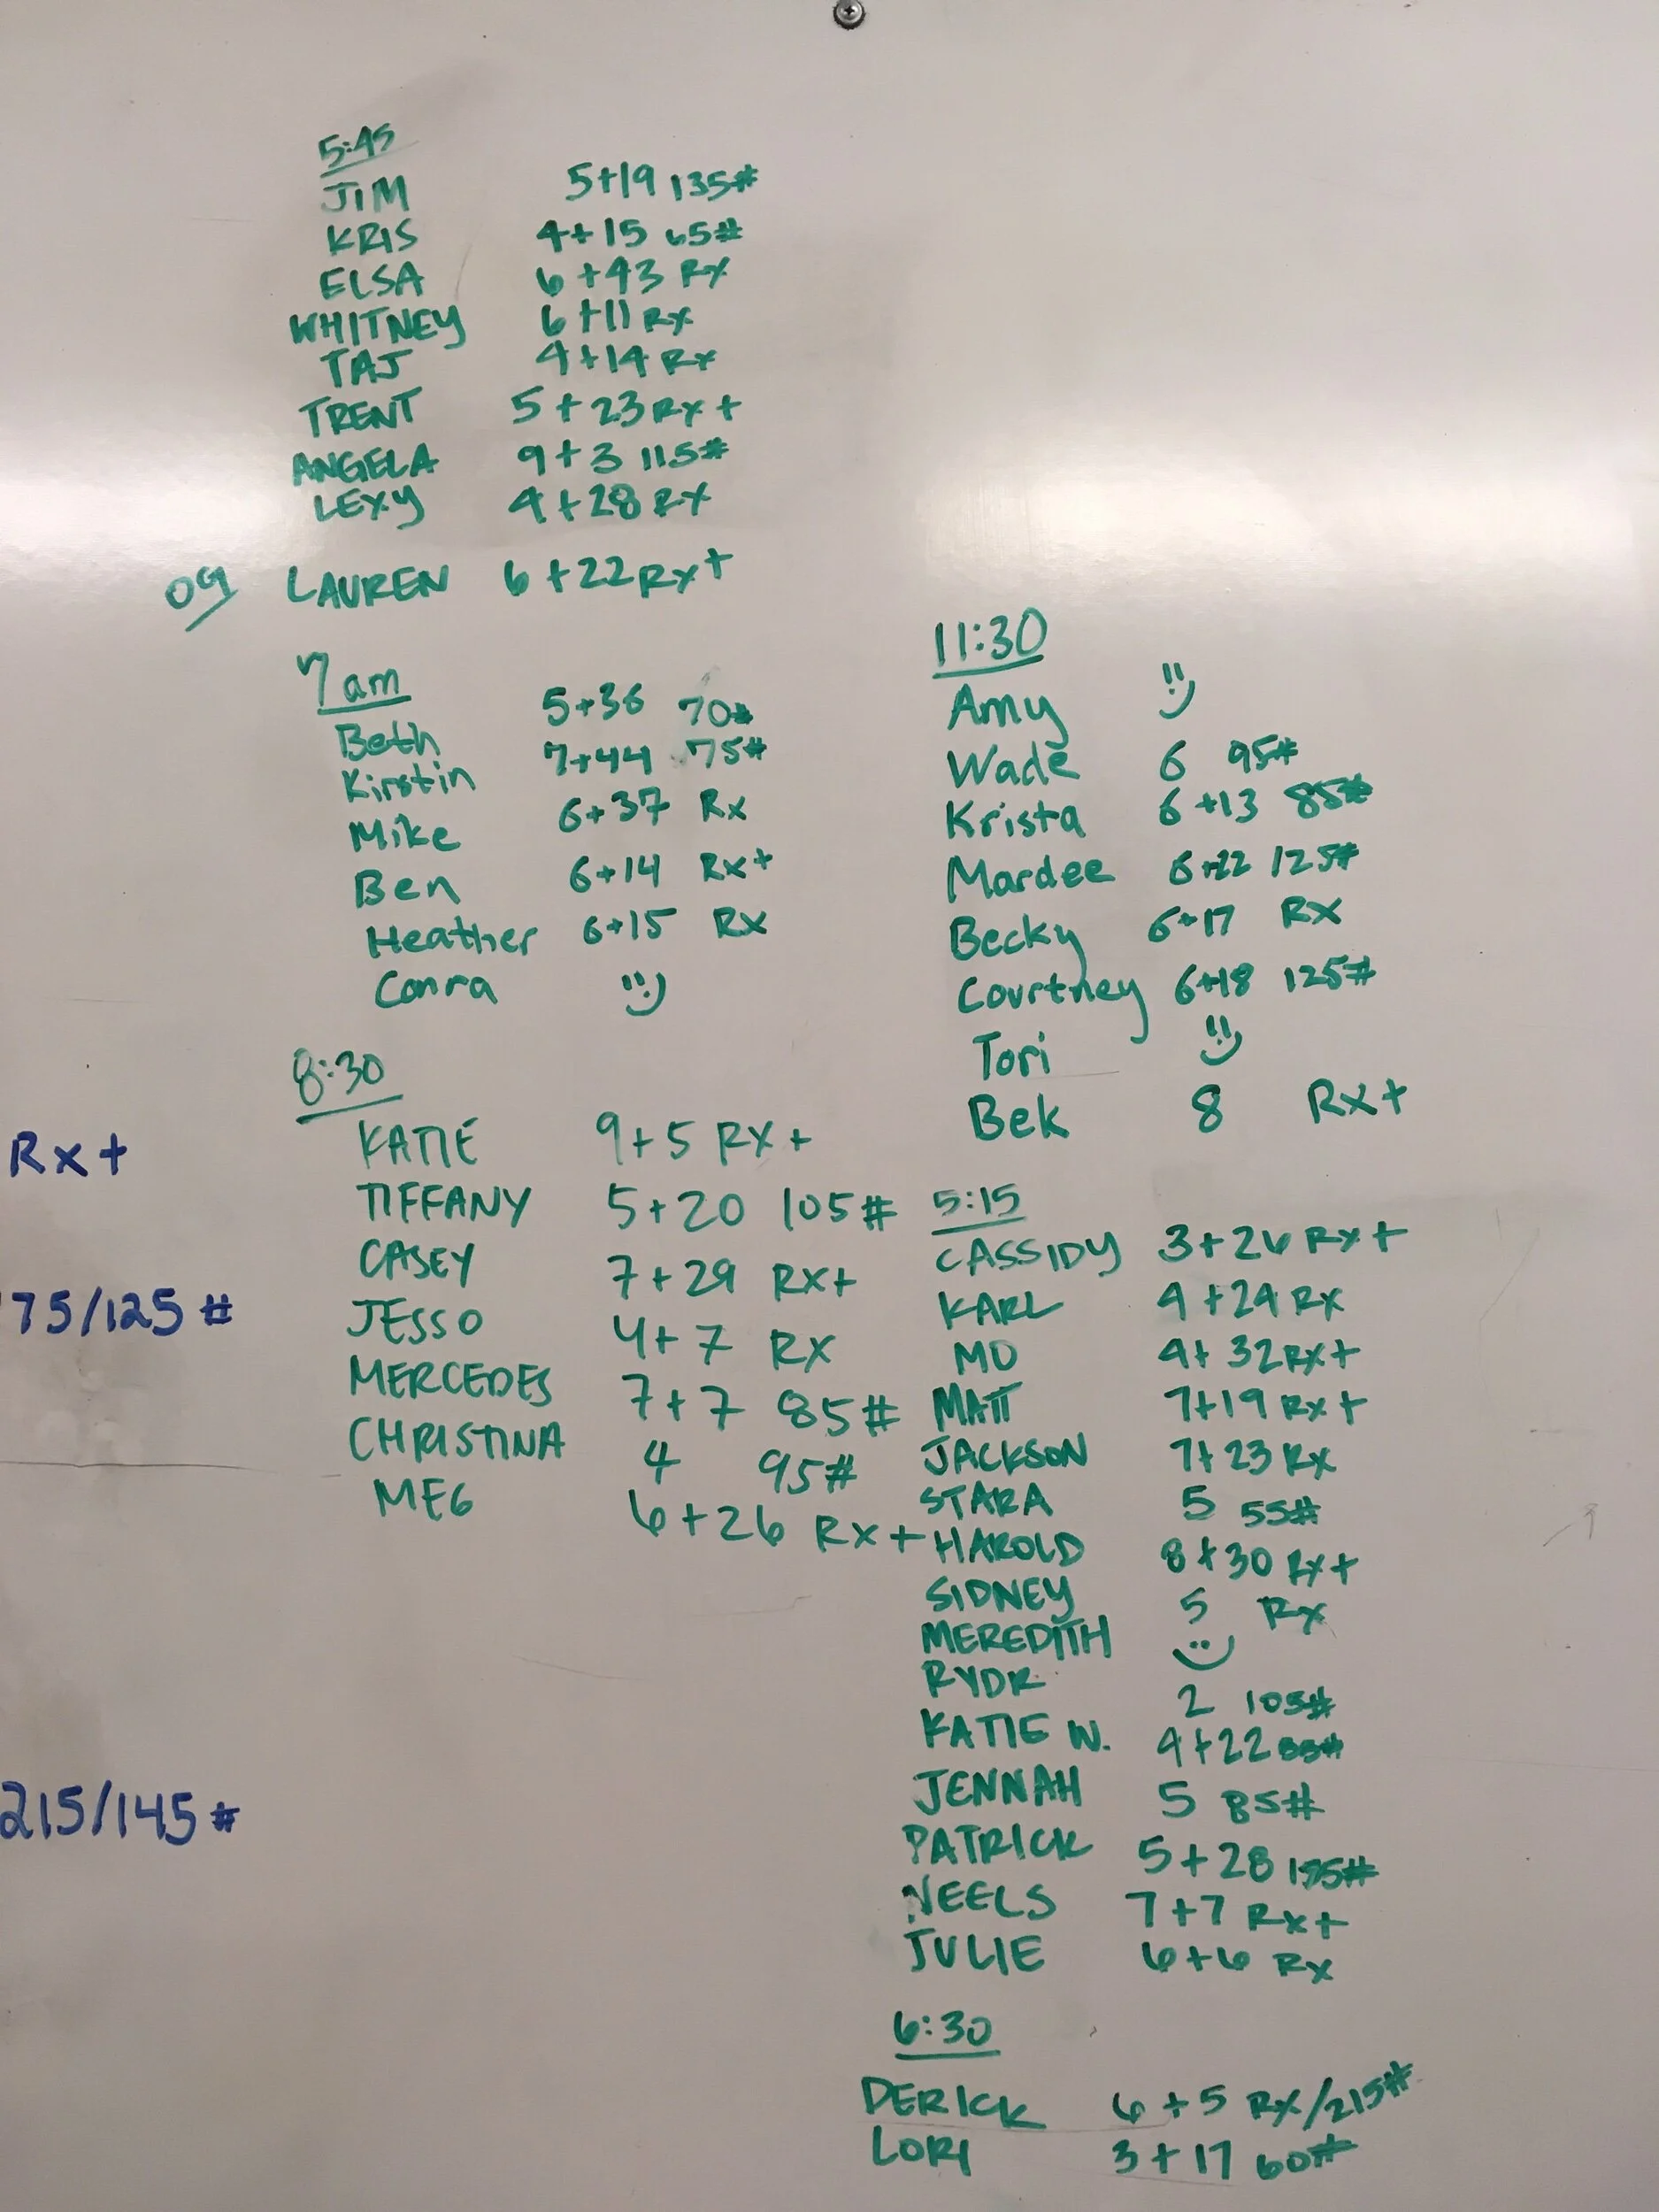 5:45
JIM 5+19 135#
KRIS 4+15 65#
ELSA 6+43 Rx
WHITNEY 6+11 Rx
TAJ 4+14 Rx
TRENT 5+23 Rx+
ANGELA 9+3 115#
LEXY 4+28 Rx
09 LAUREN 6+22 Rx+
7am
Beth 5+36 70#
Kirstin 7+44 75#
Mike 6+37 Rx
Ben 6+14 Rx+
Heather 6+15 Rx
Conra
8:30
KATIE 9+5 RX+
TIFFANY 5+20 105#
CASEY 7+29 RX+
JESSO 4+7 RX
MERCEDES 7+7 85#
CHRISTINA 4 95#
MEG 6+26 RX+
11:30
Amy
Wade 6 95#
Krista 6+13 85#
Mardee 6+22 125#
Becky 6+17 RX
Courtney 6+18 125#
Tori
Bek 8 Rx+
5:15
CASSIDY 3+26 Rx+
KARL 4+24 Rx
MO 4+32 Rx+
MATT 7+19 Rx+
JACKSON 7+23 Rx
STARA 5 55#
HAROLD 8+30 Rx+
SIDNEY 5 Rx
MEREDITH
RYDR 2 105#
KATIE W. 4+22
JENNAH 5 85#
PATRICK 5+28
NEELS 7+7 Rx+
JULIE 6+6 Rx
6:30
DERICK 6+5 RX/215#
LORI 3+17 60#
Rx+
175/125#
215/145#